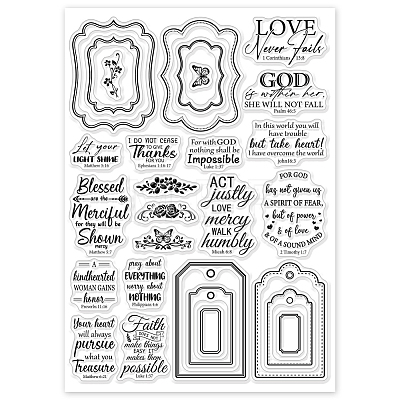 LOVE
Never Fails
1 Corinthians 13:8
GOD
is within her,
SHE WILL NOT FALL
Psalm 46:5
Let your
LIGHT SHINE
Matthew 5:16
I DO NOT CEASE
TO GIVE
Thanks
FOR YOU
Ephesians 1:16-17
For with GOD
nothing shall be
Impossible
Luke 1:37
In this world you will
have trouble
but take heart!
I have overcome the world
John16:3
Blessed
are the
Merciful
for they will be
Shown
mercy
Matthew 5:7
ACT
justly
LOVE
mercy
WALK
humbly
Micah 6:8
FOR GOD
has not given us
A SPIRIT OF FEAR,
but of power
& of love
& OF A SOUND MIND
2 Timothy 1:7
A
kindhearted
WOMAN GAINS
honor
Proverbs 11:16
pray about
EVERYTHING
worry about
NOTHING
Philippians 4:6
Your heart
will always
pursue
what you
Treasure
Matthew 6:21
Faith
DOES NOT
MAKE THINGS
EASY IT
MAKES them
possible
Luke 1:37